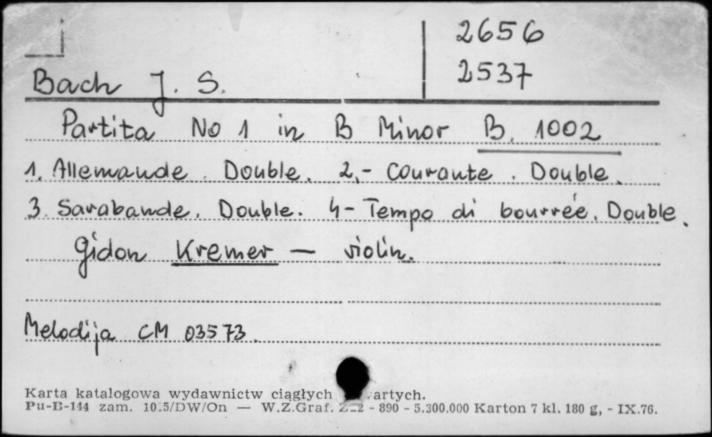 2656
2537
Bach J. S.
Partita No 1 in B Minor B. 1002
1. Allemande. Double. 2.- Courante. Double.
3. Sarabande. Double. 4- Tempo di bourrée. Double.
Gidon Kremer — violin.
Melodija CM 03573.
Karta katalogowa wydawnictw ciągłych artych.
Pu-B-144 zam. 10.5/DW/On — W.Z.Graf. - 890 - 5.300.000 Karton 7 kl. 180 g, - IX.76.